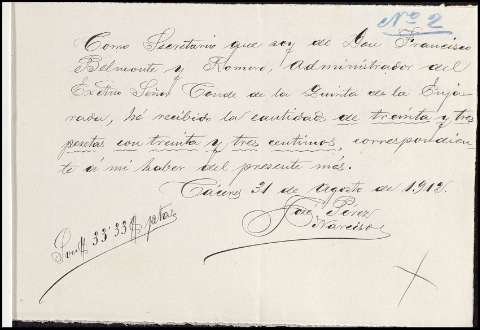 Nº 2
Como Secretario que soy de Don Francisco
Belmonte y Romero, Administrador del
Exmo Señor Conde de la Quinta de la Enja-
rada, hé recibido la cantidad de treinta y tres
pesetas con treinta y tres centimos, correspondien-
te á mi haber del presente més.
Cáceres 31 de Agosto de 1912.
José Perez
Narciso
Son 33'33 ptas